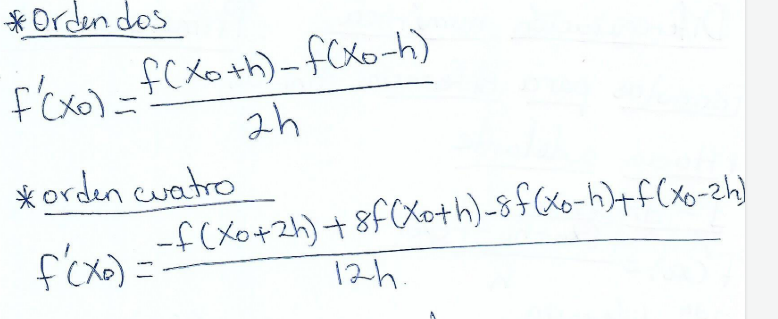 * Orden dos
f'(x0) = f(x0+h) - f(x0-h) / 2h
* orden cuatro
f'(x0) = -f(x0+2h) + 8f(x0+h) - 8f(x0-h) + f(x0-2h) / 12h.